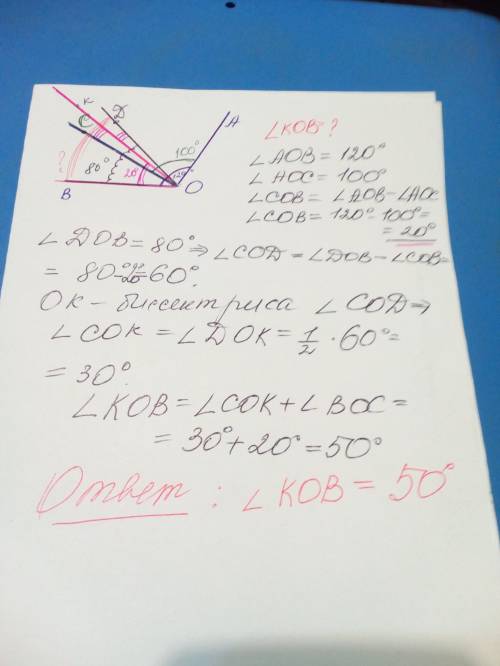 К
С
Д
А
100°
?
80°
20°
120°
В
О
∠KOB?
∠AOB = 120°
∠AOC = 100°
∠COB = ∠AOB - ∠AOC
∠COB = 120° - 100° =
= 20°
∠DOB = 80° ⇒ ∠COD = ∠DOB - ∠COB =
= 80° - 20° = 60°.
OK - биссектриса ∠COD ⇒
∠COK = ∠DOK = 1/2 · 60° =
= 30°.
∠KOB = ∠COK + ∠BOC =
= 30° + 20° = 50°
Ответ : ∠KOB = 50°